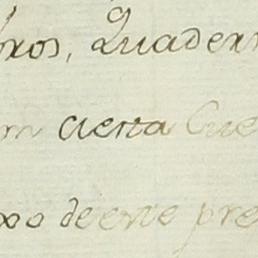 bros, Quadern
m cierta Cue
xo de este pre